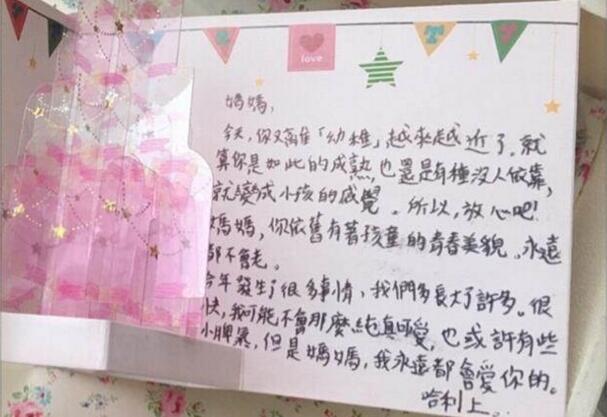 love
媽媽,
今天,你又離「幼稚」越來越近了。就
算你是如此的成熟,也還是有種沒人依靠,
就變成小孩的感覺。所以,放心吧!
媽媽,你依舊有著孩童的青春美貌。永遠
都不會老。
今年發生了很多事情,我們多長大了許多。很
快,我可能不會那麼純真可愛,也或許有些
小脾氣,但是媽媽,我永遠都會愛你的。
哈利上